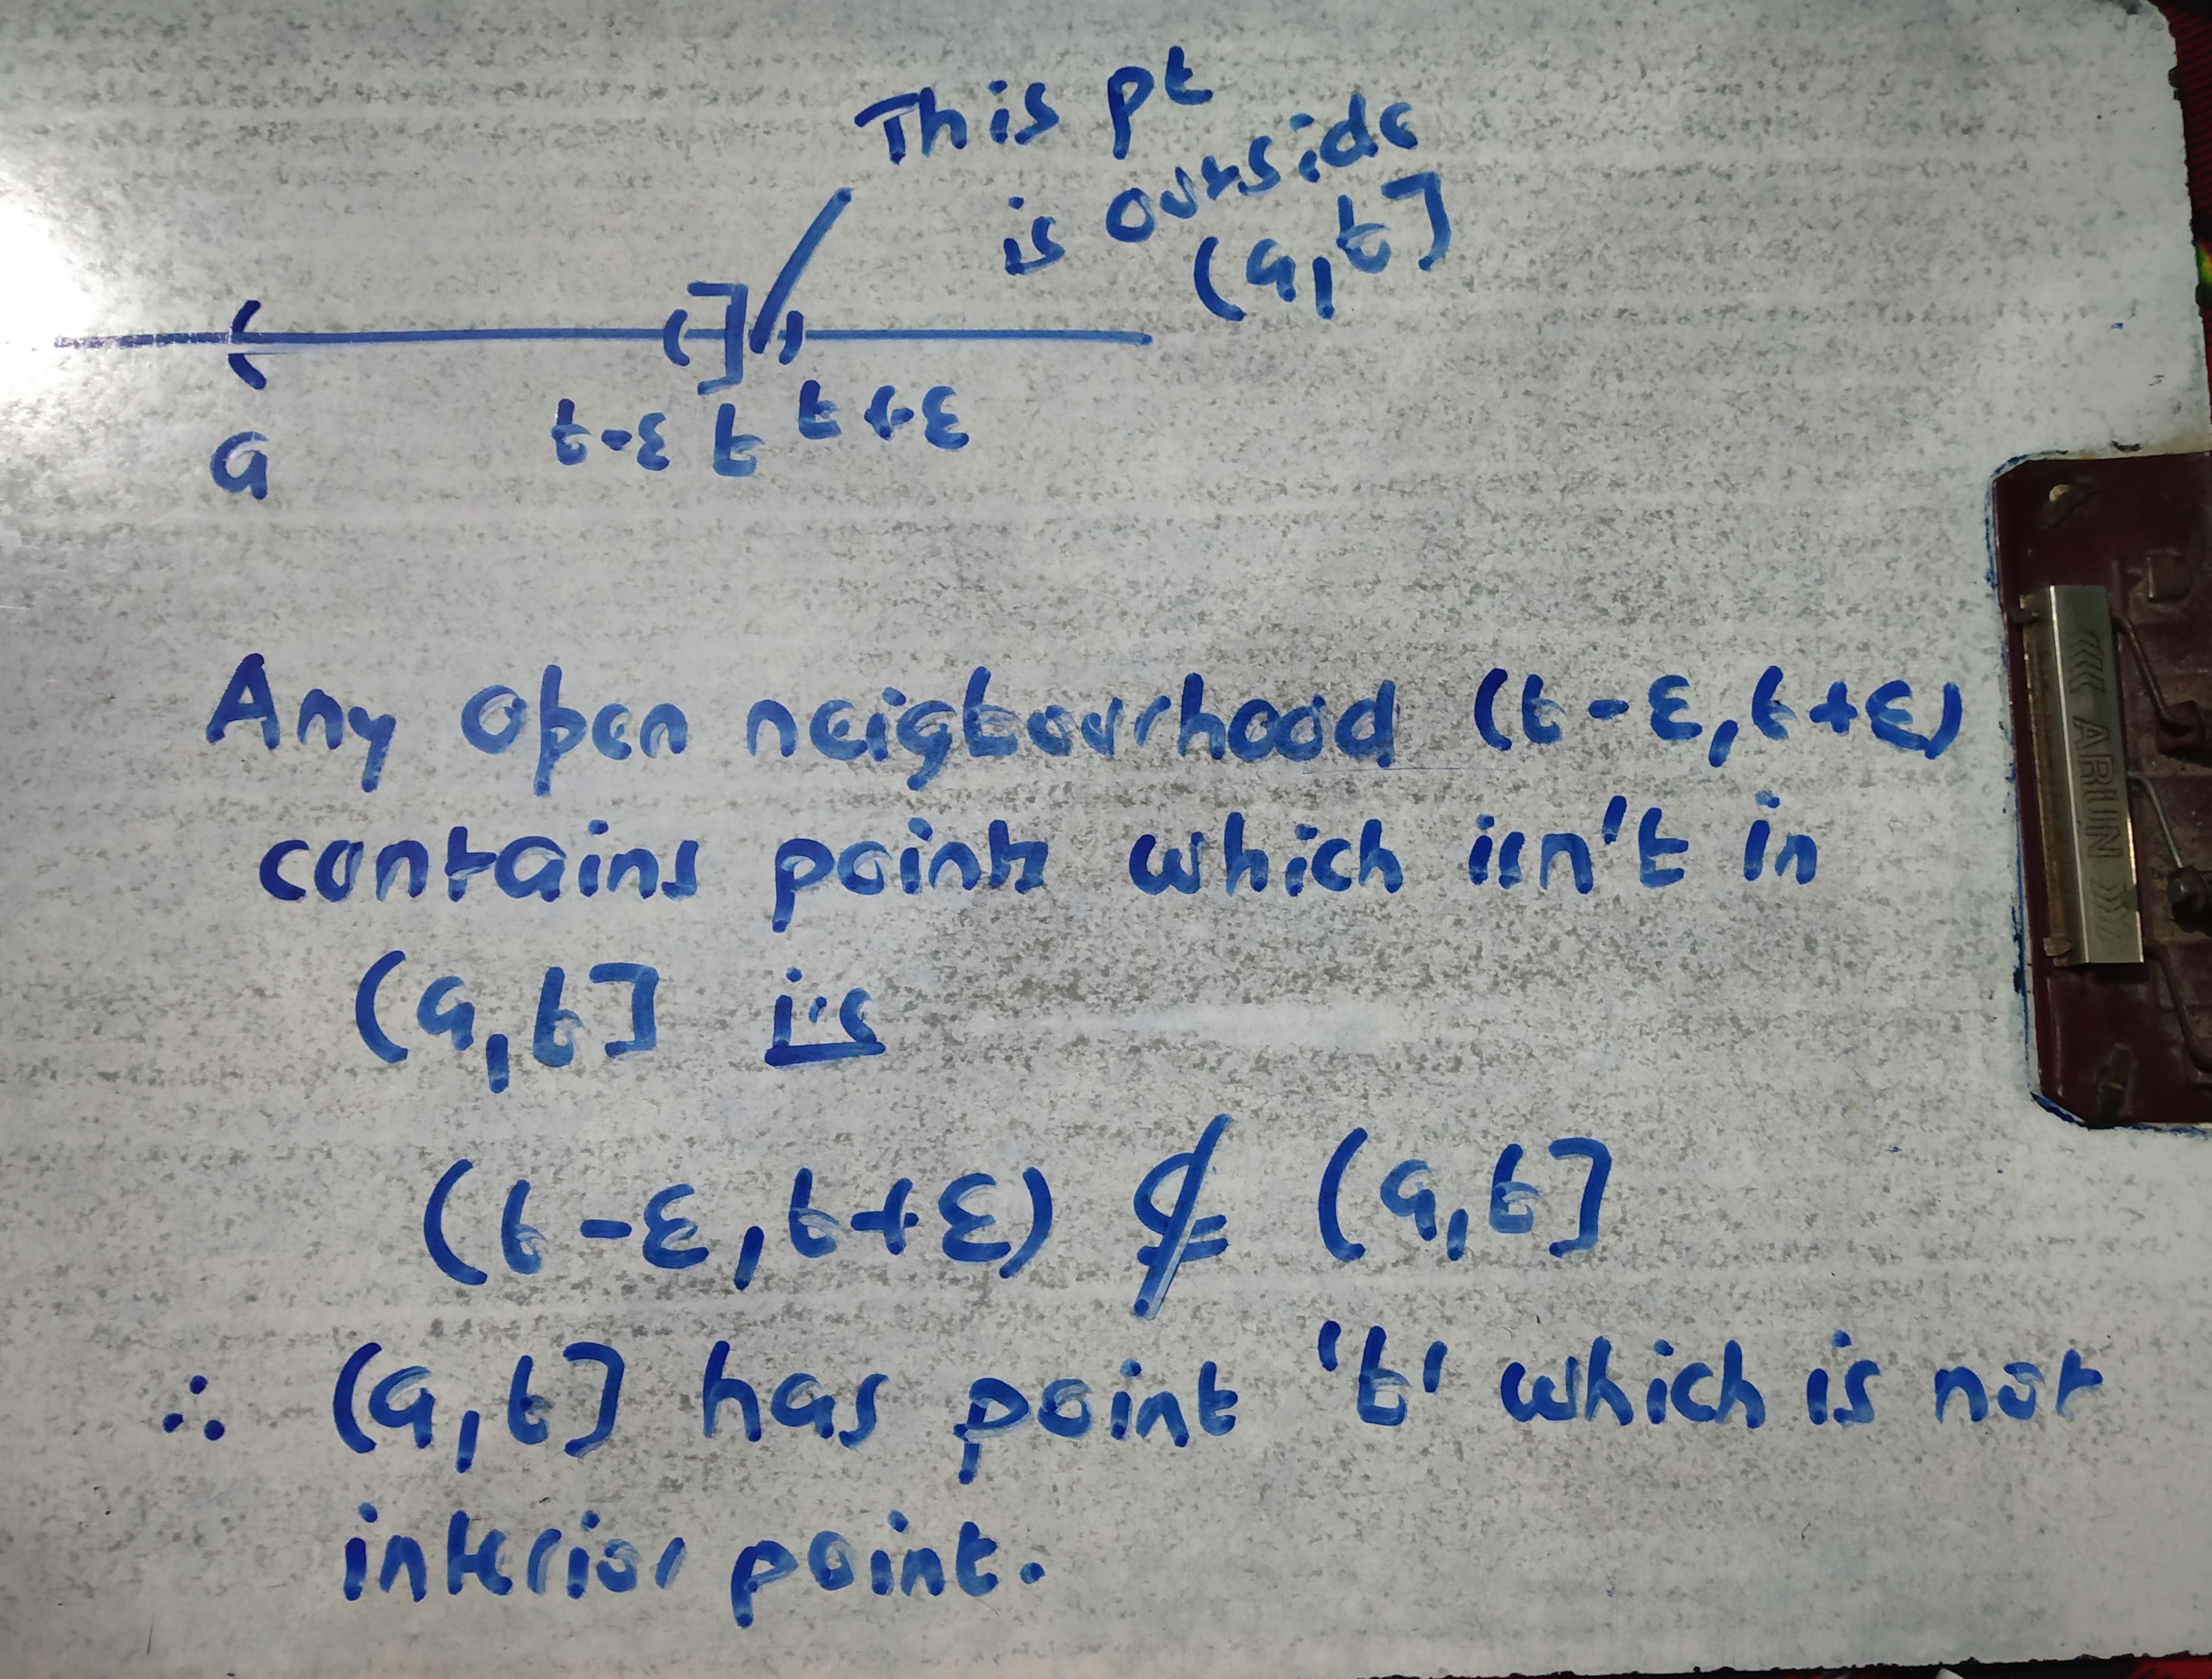 This pt
is outside
(a,b]
( ( ] )
a b-ε b b+ε
Any open neigbourhood (b-ε,b+ε)
contains points which isn't in
(a,b] i.e
(b-ε,b+ε) ⊈ (a,b]
∴ (a,b] has point 'b' which is not
interior point.